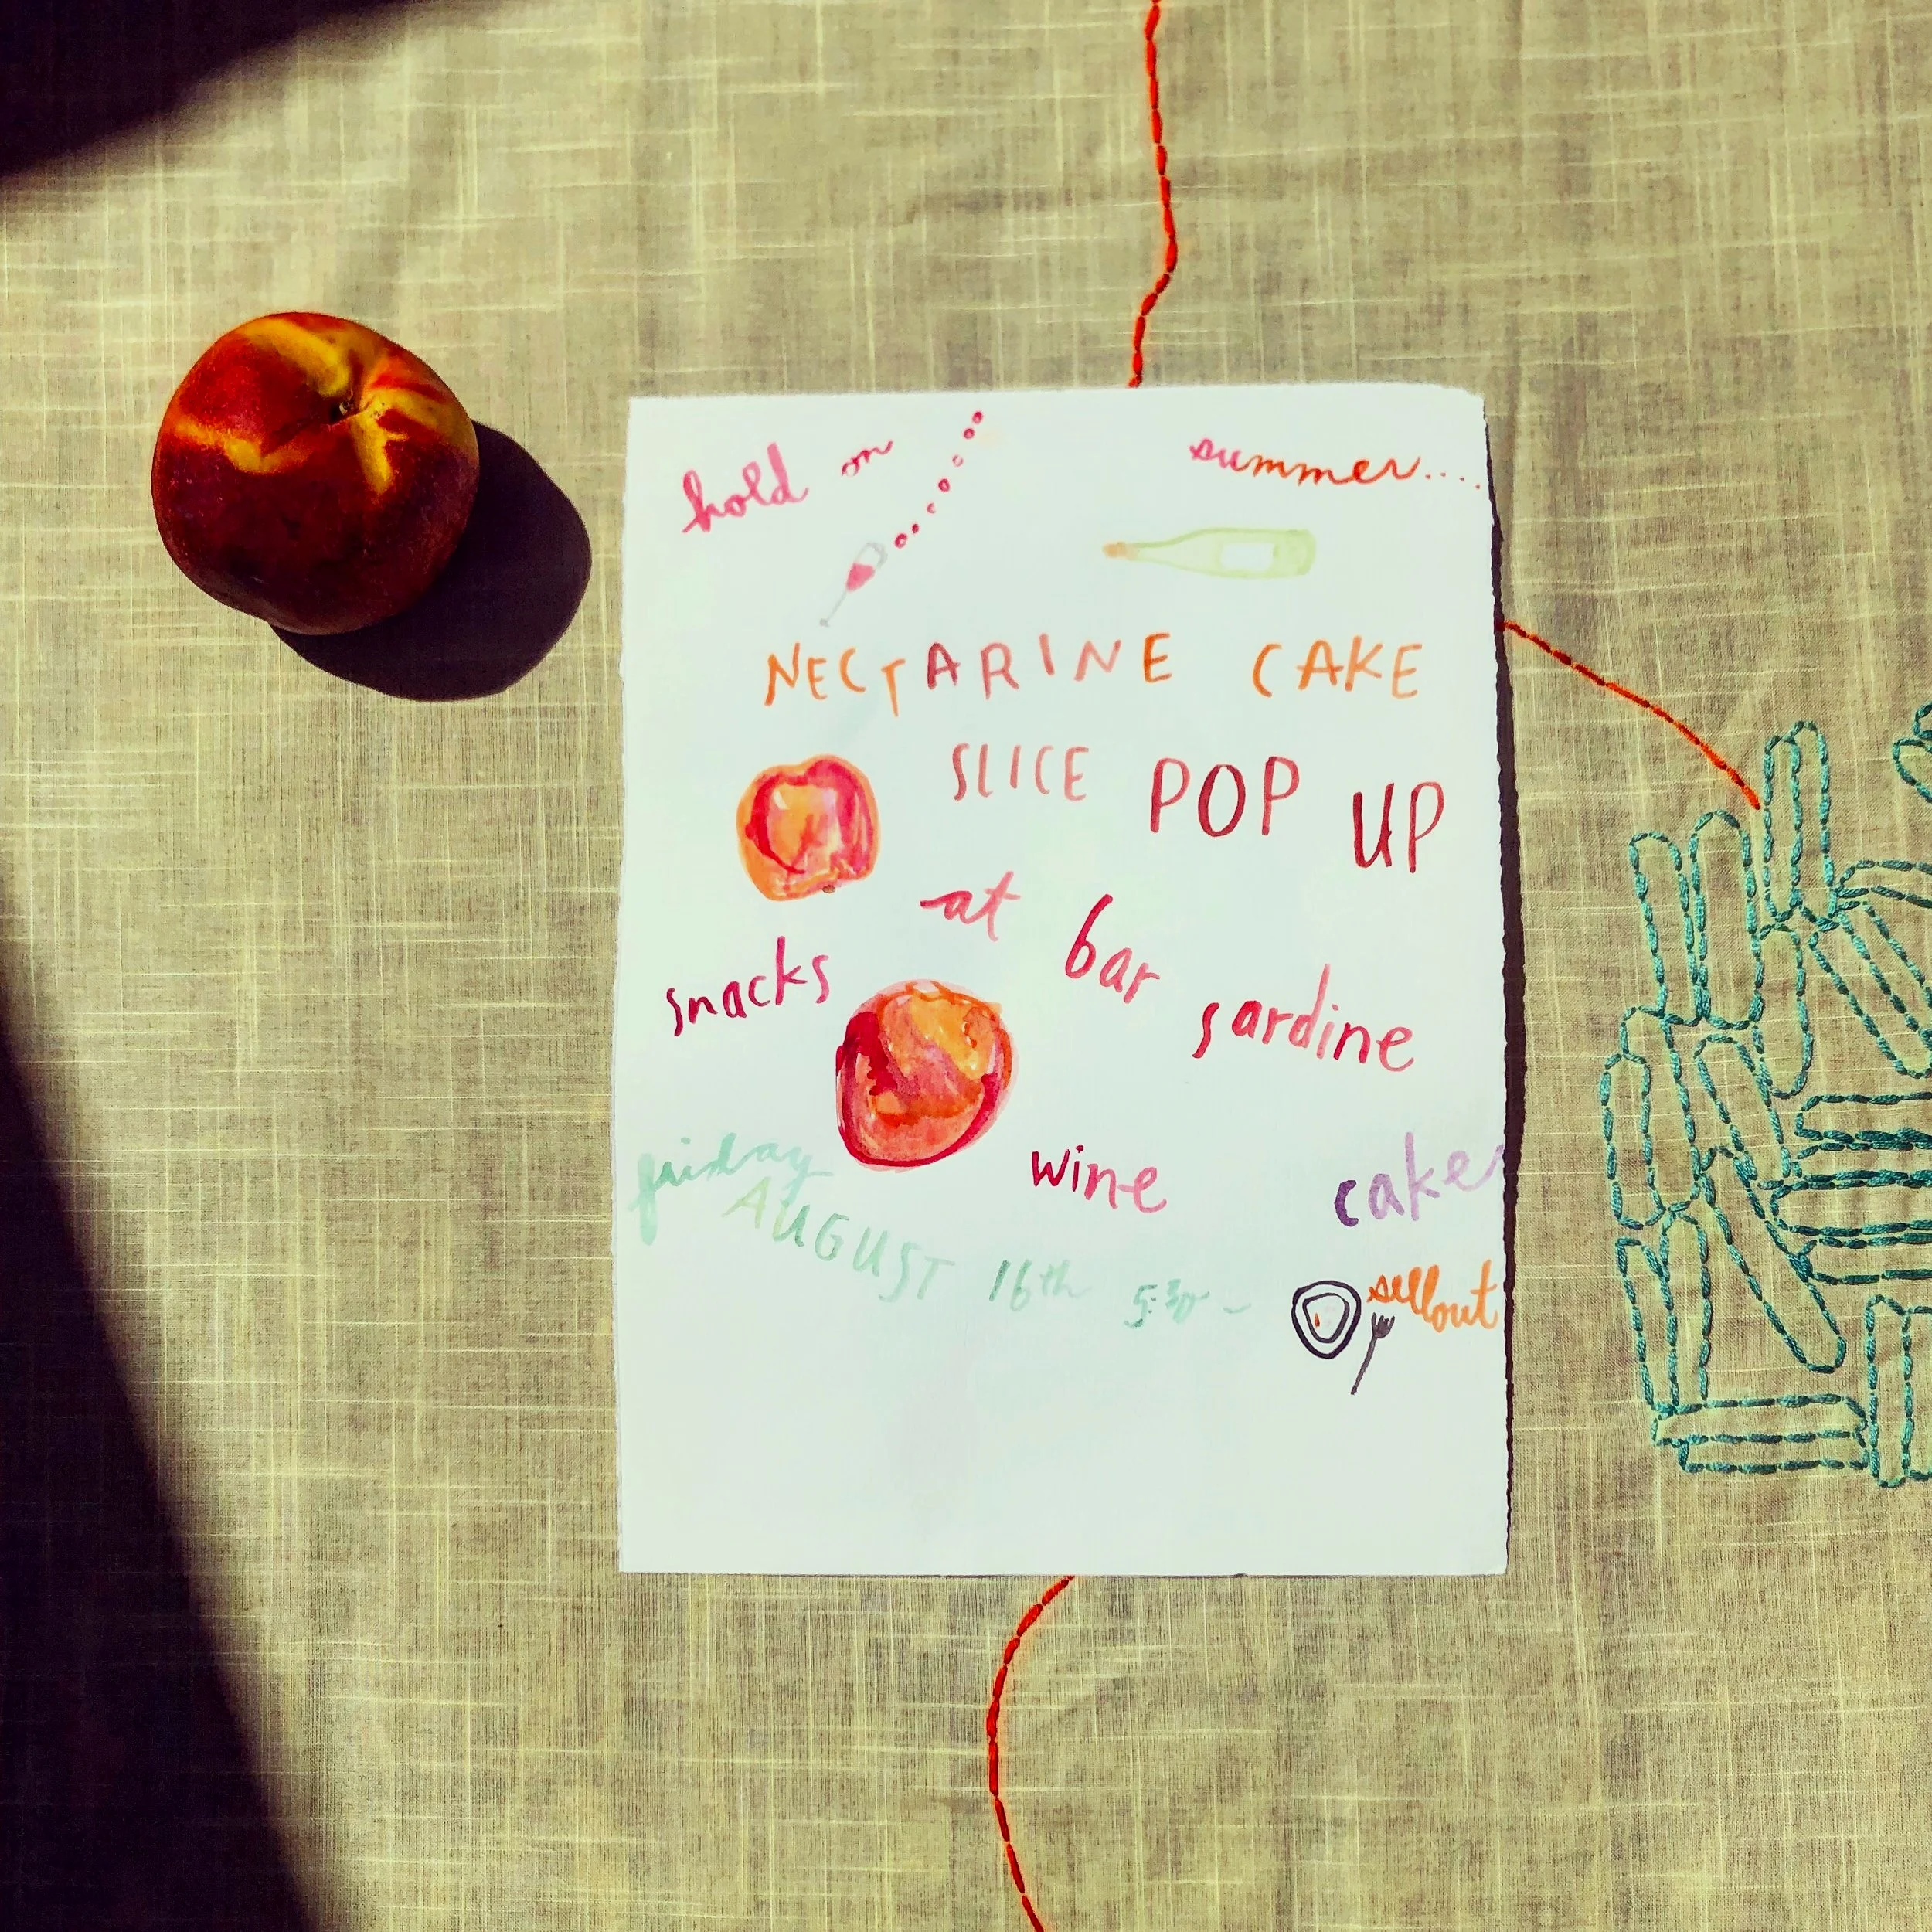 hold on
summer....
NECTARINE CAKE
SLICE POP UP
at bar sardine
snacks
wine
cake
friday
AUGUST 16th 5:30 -
sellout